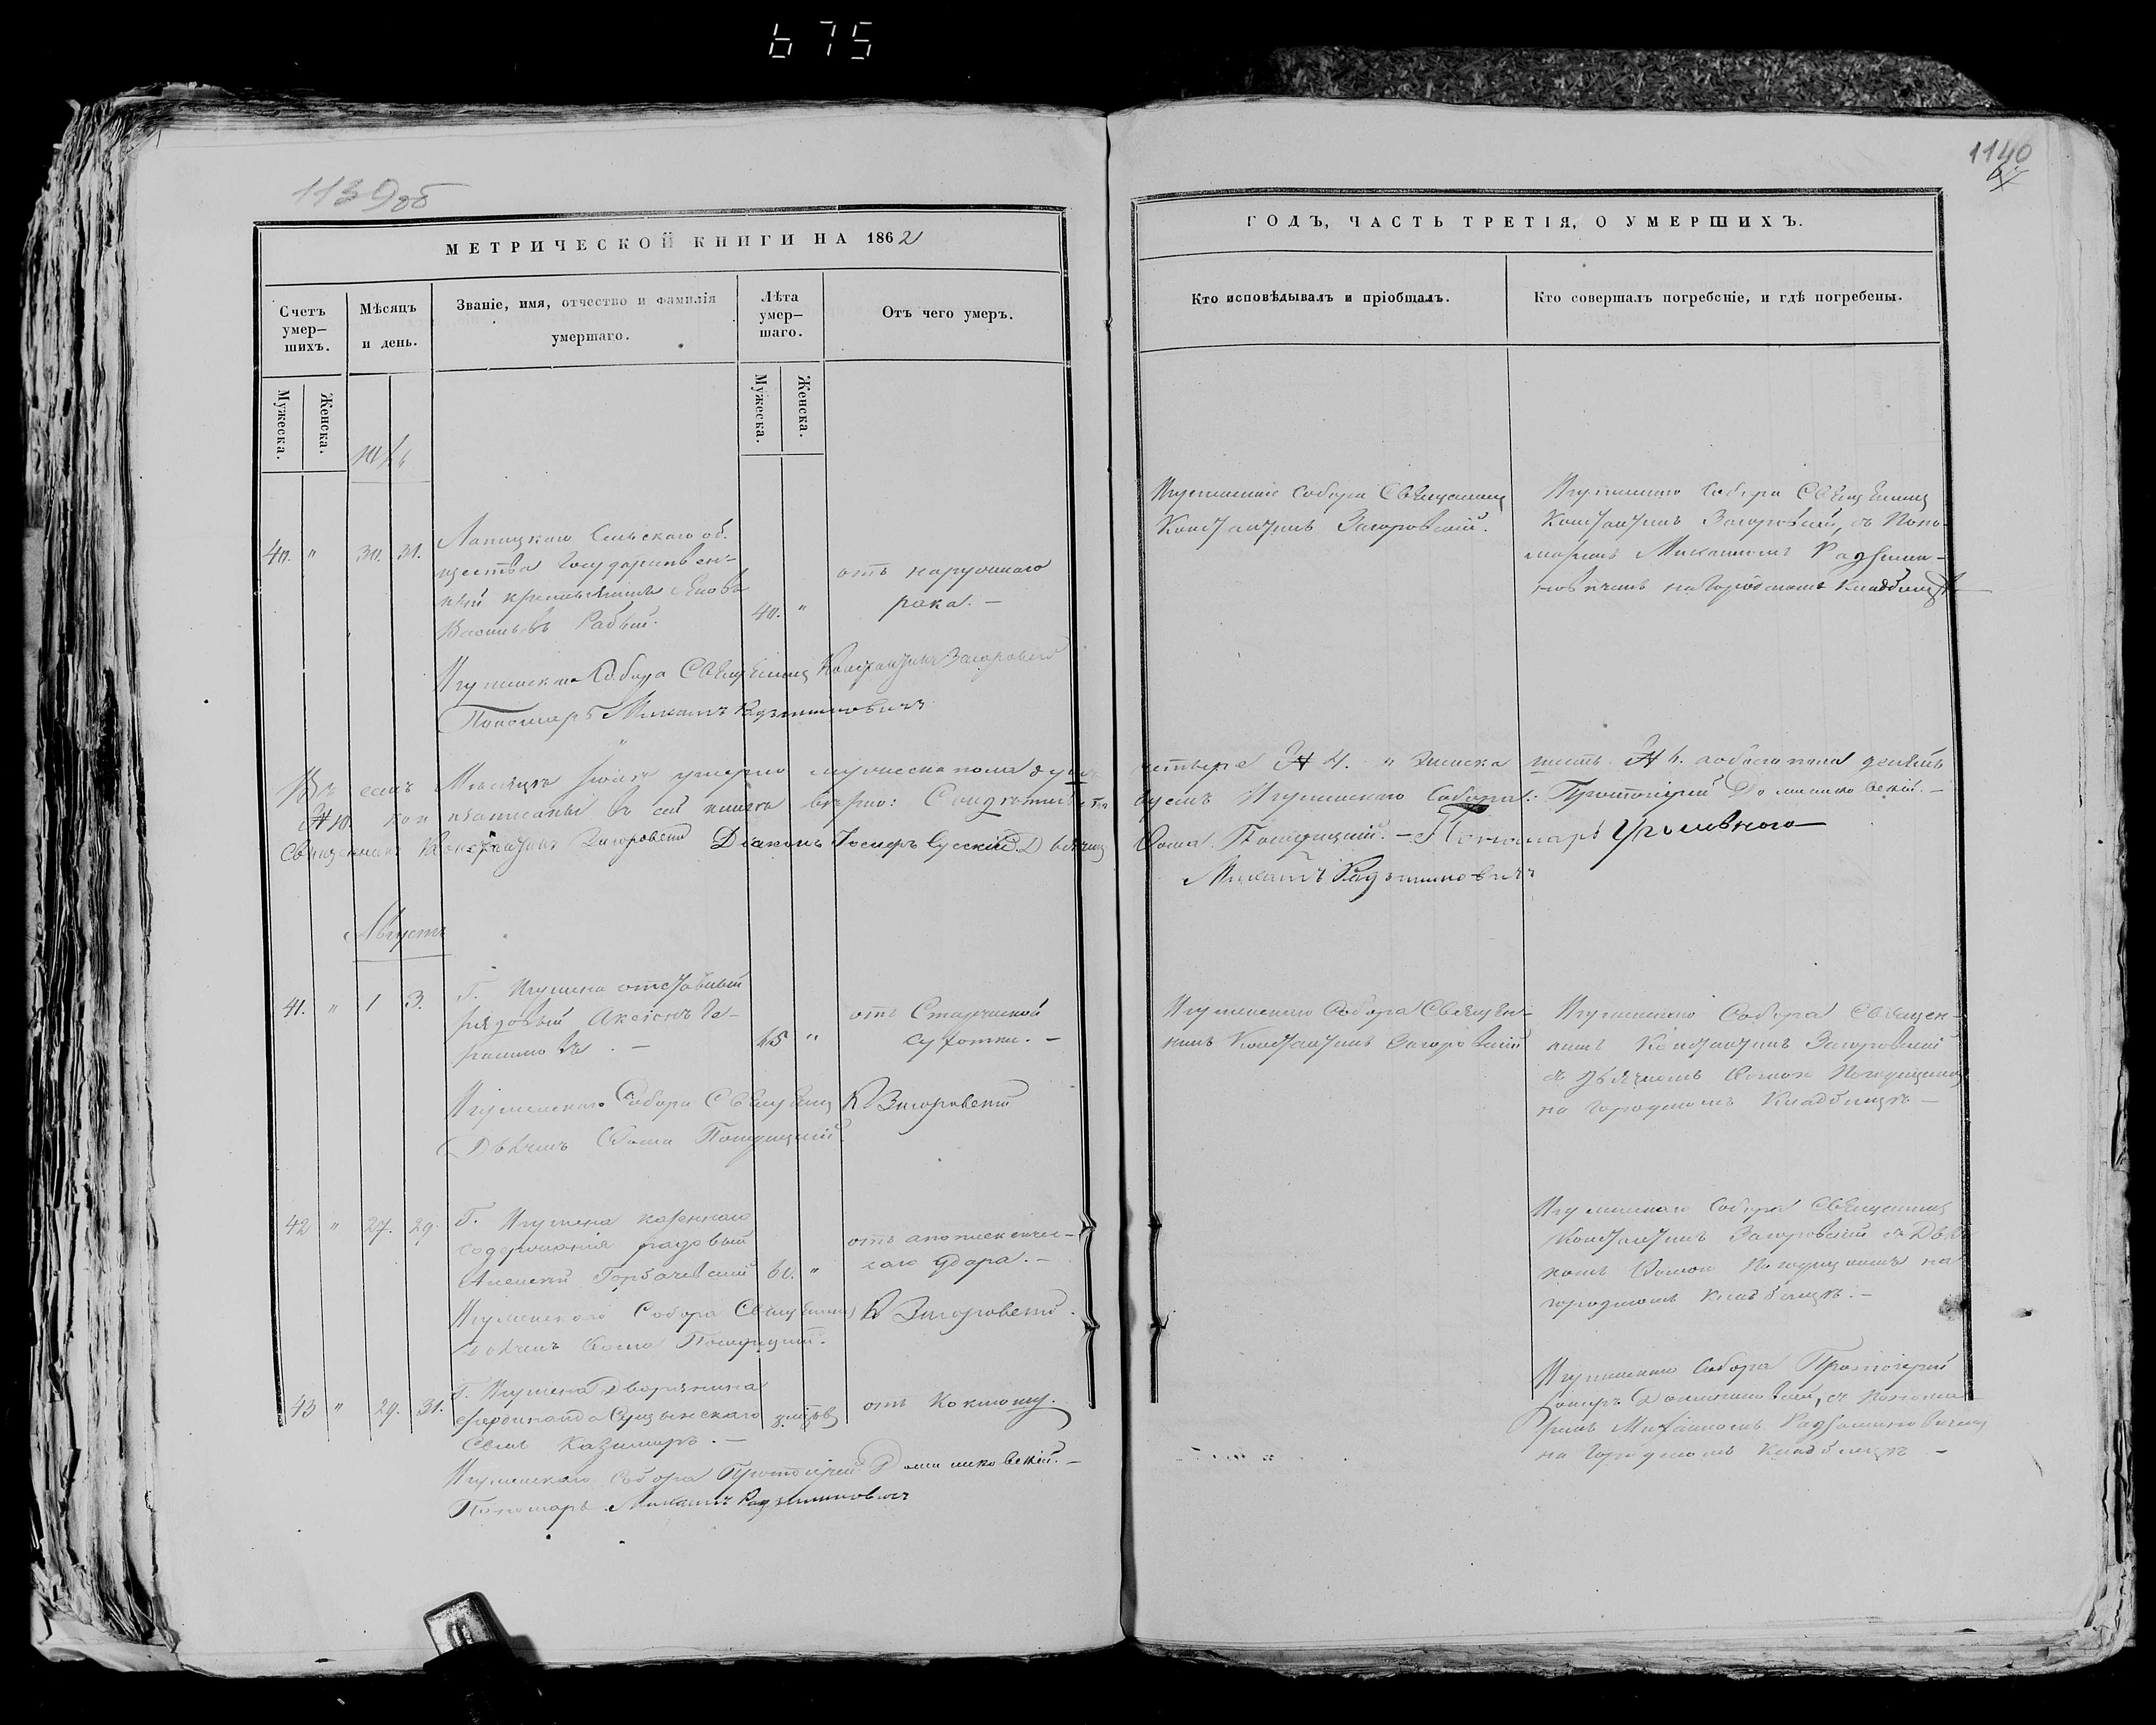 675
1139об
МЕТРИЧЕСКОЙ КНИГИ НА 1862
Счетъ умер-шихъ.
Мѣсяцъ и день.
Званіе, имя, отчество и фамилія умершаго.
Лѣта умер-шаго.
Отъ чего умеръ.
Мужеска.
Женска.
Мужеска.
Женска.
40. " 30. 31.
Лапицкаго Сельскаго об-
щества Государствен-
ный крестьянинъ
Васильевъ Рабый.
40. "
отъ наружнаго
рака. —
Игуменскаго Собора Священникъ Константинъ Загоровскій
Пономарь Михаилъ Радзиминовичъ
Въ семъ Мѣсяцѣ Іюлѣ умерло мужеска пола
№ 10. кои и записаны въ сей книгѣ вѣрно:
Священникъ Константинъ Загоровскій Діаконъ Іосифъ Сускій Дьячекъ
Августъ
41. " 1 3.
Г. Игумена отставный
рядовый Аксіонъ Ге-
расимовъ. —
65 "
отъ Старческой
сухотки. —
Игуменскаго Собора Священникъ К Загоровскій
Дьячекъ Фома
42 " 27. 29.
Г. Игумена казеннаго
содержанія рядовый
Алексѣй Горбачевскій
60. "
отъ апоплексичес-
каго удара. —
Игуменскаго Собора Священникъ К Загоровскій.
Дьячекъ Фома
43 " 29. 31.
Г. Игумена Дворянина
Фердинанда
Сынъ Казимиръ. —
отъ Коклюшу.
Игуменскаго Собора Протоіерей Доминиковскій. —
Пономарь Михаилъ Радзиминовичъ
1140
ГОДЪ, ЧАСТЬ ТРЕТІЯ, О УМЕРШИХЪ.
Кто исповѣдывалъ и пріобщалъ.
Кто совершалъ погребеніе, и гдѣ погребены.
Игуменскаго Собора Священникъ
Константинъ Загоровскій.
Игуменскаго Собора Священникъ
Константинъ Загоровскій, съ Поно-
маремъ Михаиломъ Радзими-
новичемъ на Городскомъ Кладбищѣ
четыре № 4. и женска шесть № 6. обоего пола десять
Игуменскаго Собора: Протоіерей Доминиковскій. —
Фома — Пономарь
Михаилъ Радзиминовичъ
Игуменскаго Собора Священ-
никъ Константинъ Загоровскій
Игуменскаго Собора Священ-
никъ Константинъ Загоровскій
съ Дьячкомъ Фомою
на Городскомъ Кладбищѣ —
Игуменскаго Собора Священникъ
Константинъ Загоровскій съ Дьяч-
комъ Фомою на
городскомъ кладбищѣ. —
Игуменскаго Собора Протоіерей
Доминиковскій, съ Понома-
ремъ Михаиломъ Радзиминовичемъ
на Городскомъ Кладбищѣ —